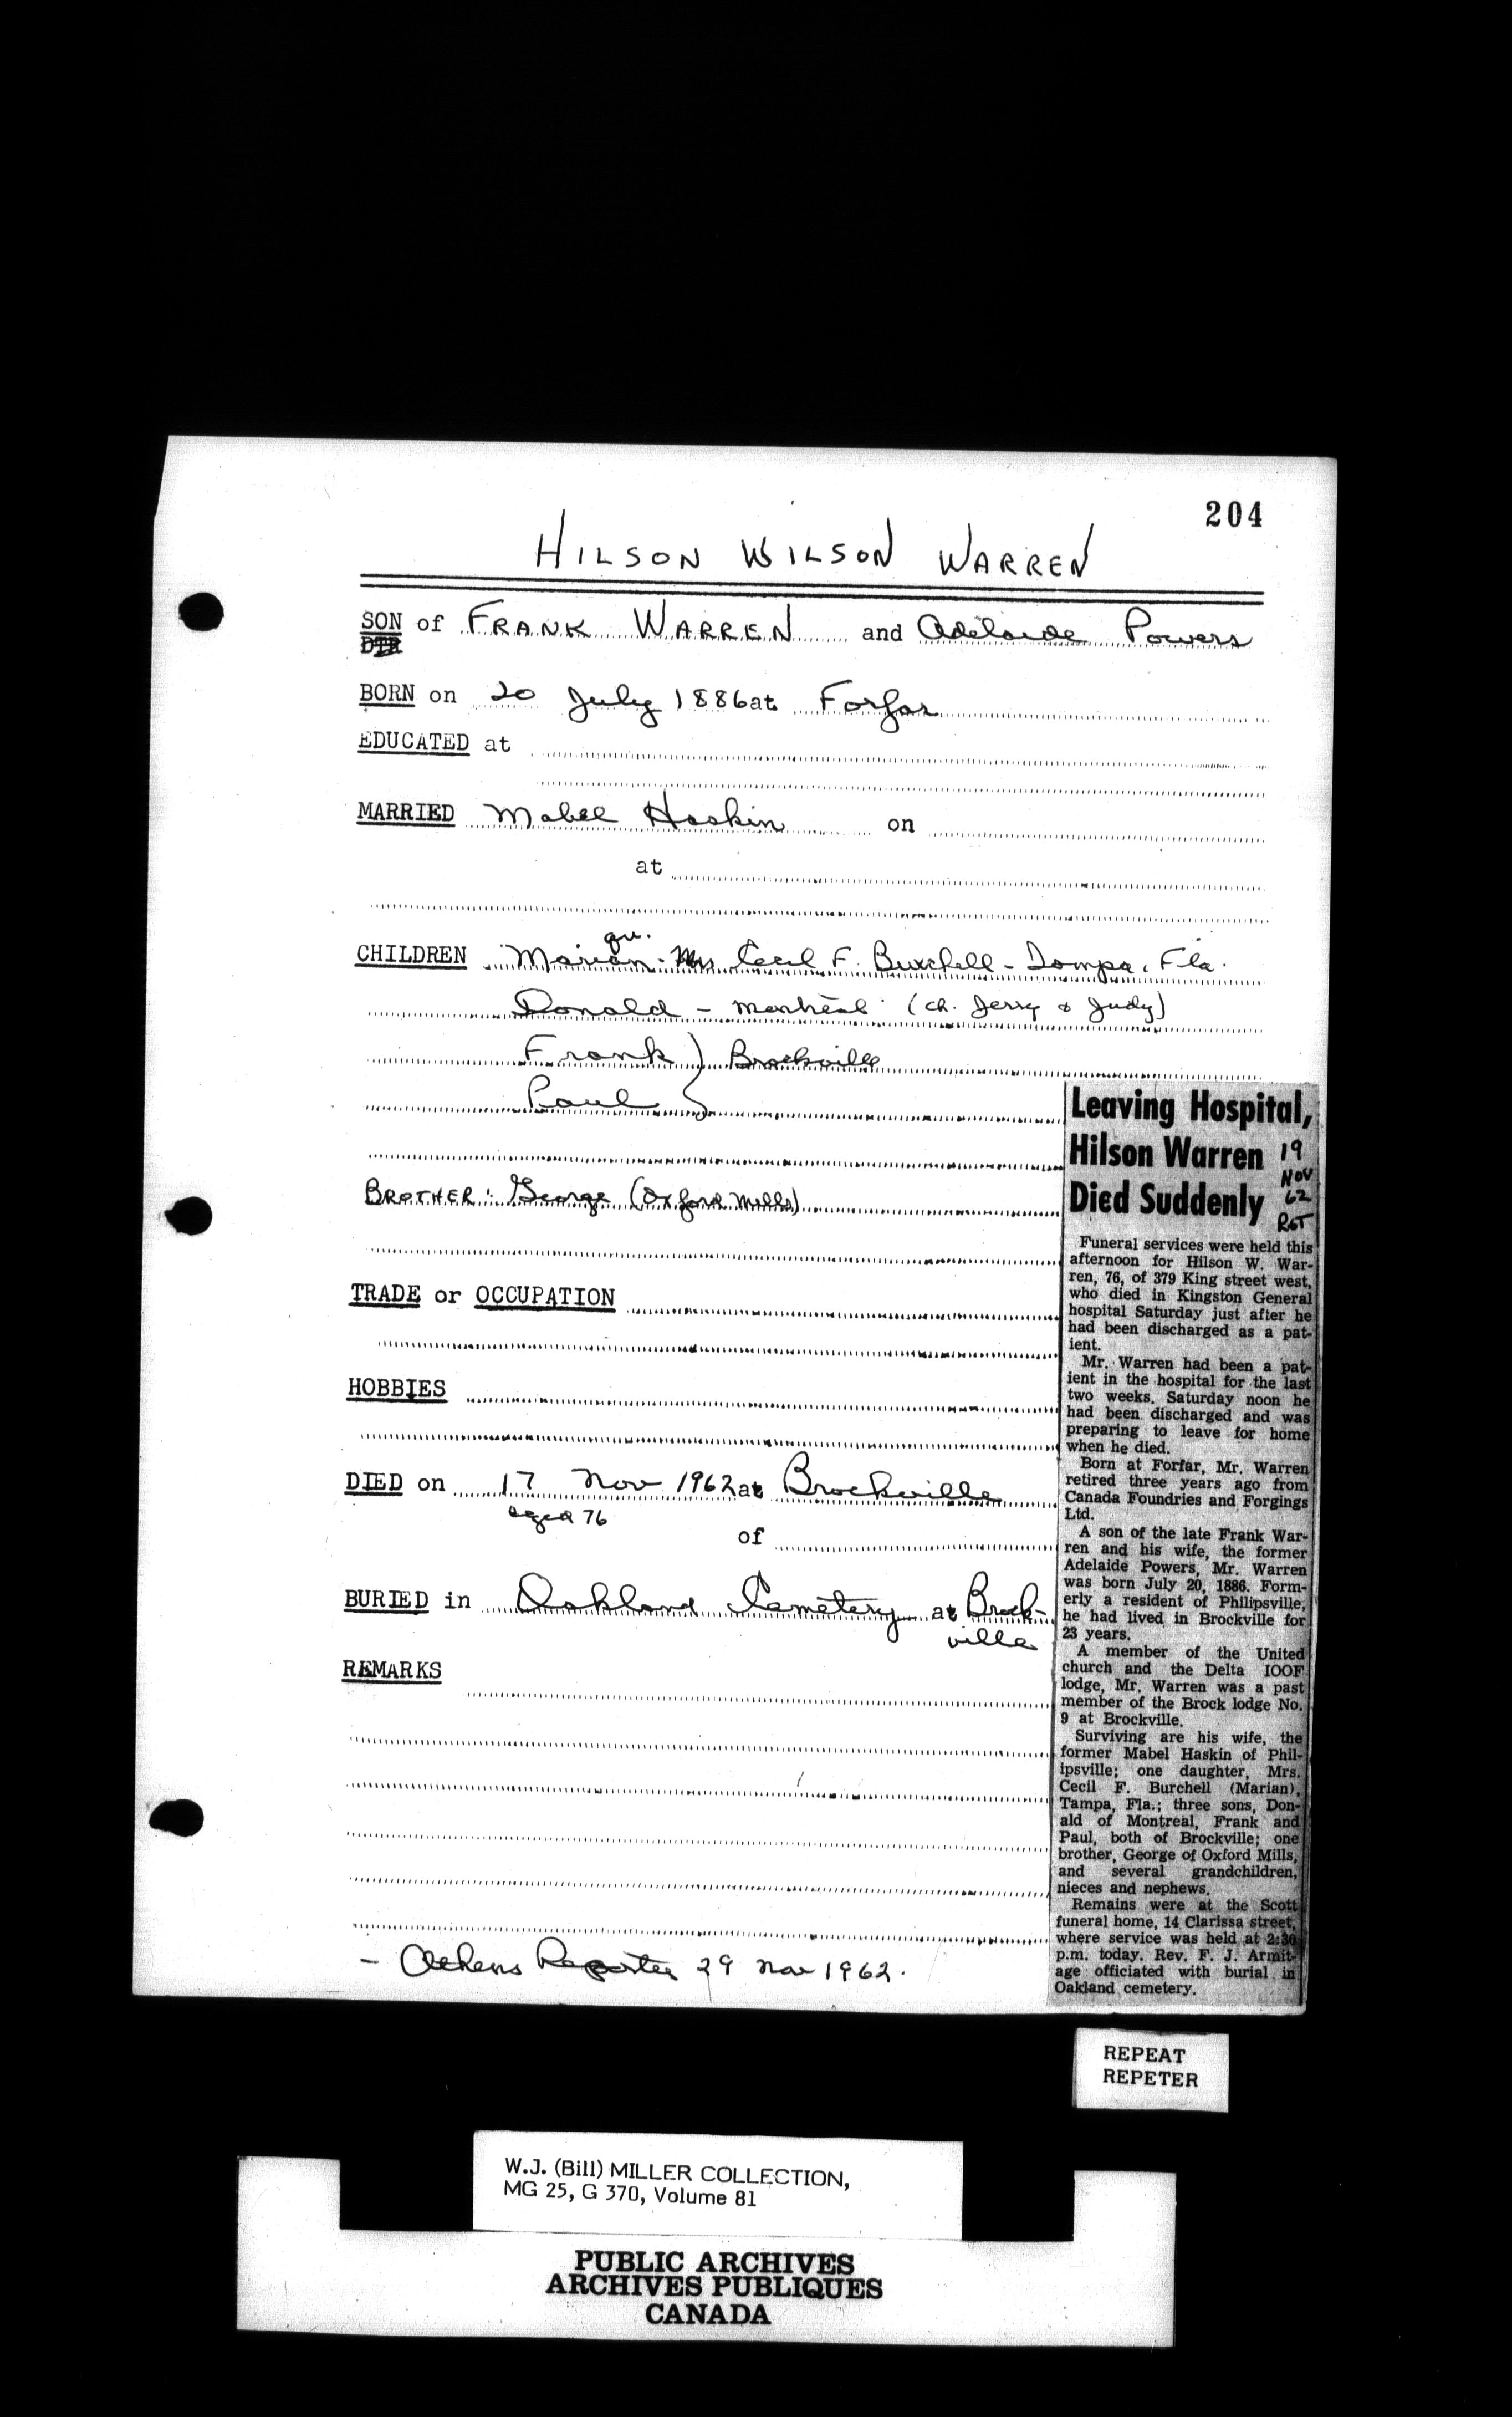 204
HILSON WILSON WARREN
SON of FRANK WARREN and Adelaide Powers
DTR
BORN on 20 July 1886 at Forfar
EDUCATED at
MARRIED Mabel Haskin on
at
qu.
CHILDREN Marian - Mrs Cecil F. Burchell - Tampa, Fla.
Donald - Montreal (ch. Jerry & Judy)
Frank ) Brockville
Paul )
BROTHER: George (Oxford Mills)
TRADE or OCCUPATION
HOBBIES
DIED on 17 Nov 1962 at Brockville
aged 76
of
BURIED in Oakland Cemetery at Brock-
ville
REMARKS
- Athens Reporter 29 Nov 1962.
Leaving Hospital,
Hilson Warren
Died Suddenly
19
NOV
62
R&T
Funeral services were held this
afternoon for Hilson W. War-
ren, 76, of 379 King street west,
who died in Kingston General
hospital Saturday just after he
had been discharged as a pat-
ient.
Mr. Warren had been a pat-
ient in the hospital for the last
two weeks. Saturday noon he
had been discharged and was
preparing to leave for home
when he died.
Born at Forfar, Mr. Warren
retired three years ago from
Canada Foundries and Forgings
Ltd.
A son of the late Frank War-
ren and his wife, the former
Adelaide Powers, Mr. Warren
was born July 20, 1886. Form-
erly a resident of Philipsville,
he had lived in Brockville for
23 years.
A member of the United
church and the Delta IOOF
lodge, Mr. Warren was a past
member of the Brock lodge No.
9 at Brockville.
Surviving are his wife, the
former Mabel Haskin of Phil-
ipsville; one daughter, Mrs.
Cecil F. Burchell (Marian),
Tampa, Fla.; three sons, Don-
ald of Montreal, Frank and
Paul, both of Brockville; one
brother, George of Oxford Mills,
and several grandchildren,
nieces and nephews.
Remains were at the Scott
funeral home, 14 Clarissa street,
where service was held at 2:30
p.m. today. Rev. F. J. Armit-
age officiated with burial in
Oakland cemetery.
REPEAT
REPETER
W.J. (Bill) MILLER COLLECTION,
MG 25, G 370, Volume 81
PUBLIC ARCHIVES
ARCHIVES PUBLIQUES
CANADA